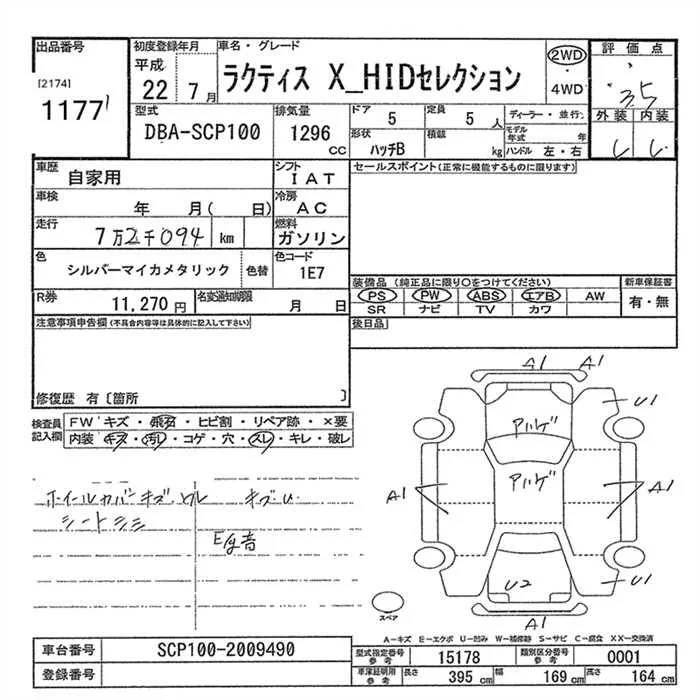 出品番号
[2174]
1177
初度登録年月
平成
22年 7月
車名・グレード
ラクティス X_HIDセレクション
2WD
・
4WD
評価点
3.5
外装 内装
型式
DBA-SCP100
排気量
1296
CC
ドア
5
定員
5人
形状
ハッチB
積載
kg
ディーラー・並行
モデル年式 年
ハンドル 左・右
車歴
自家用
シフト
IAT
セールスポイント(正常に機能するものに限ります)
車検
年 月( 日)
冷房
AC
走行
7万2千094 km
燃料
ガソリン
色
シルバーマイカメタリック
色替
色コード
1E7
装備品 (純正品に限り○をつけてください)
新車保証書
PS PW ABS エアB AW
有・無
SR ナビ TV カワ
R券
11,270円
名変通知期限
月 日
後日品
注意事項申告欄(不具合内容等は具体的に記入して下さい)
修復歴 有〔箇所 〕
検査員記入欄
FW キズ・飛石・ヒビ割・リペア跡・×要
内装 キズ・汚レ・コゲ・穴・スレ・キレ・破レ
ホイールカバーキズ ワレ キズU
シートシミ
E/g音
A1 A1
U1
アハゲ
アハゲ
A1
A1
U2
U1
A1
スペア
A-キズ E-エクボ U-凹み W-補修跡 S-サビ C-腐食 XX-交換済
車台番号
SCP100-2009490
登録番号
型式指定番号参考
15178
類別区分番号参考
0001
車庫証明用参考
長さ 395 cm 幅 169 cm 高さ 164 cm